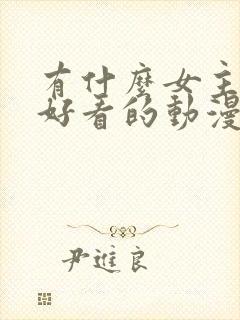 有什麼女主
好看的動漫
尹進良